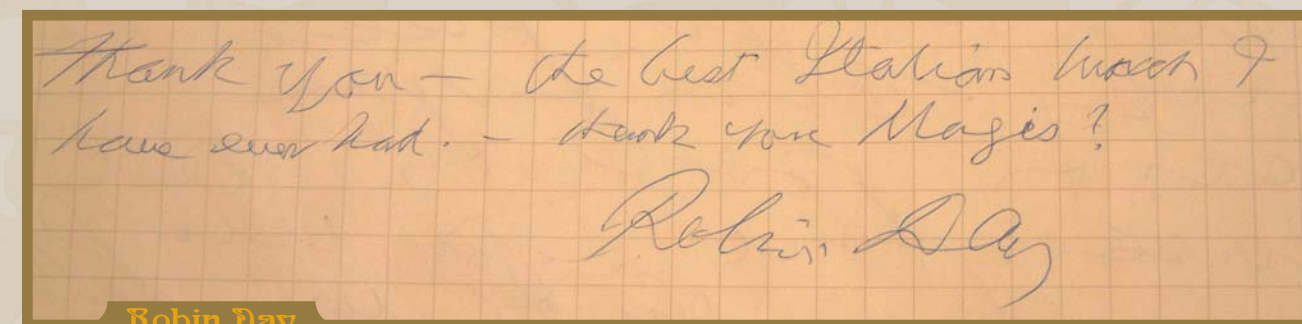 Thank you – the best Italian lunch I
have ever had. – thank you Magis!
Robin Day
Robin Day